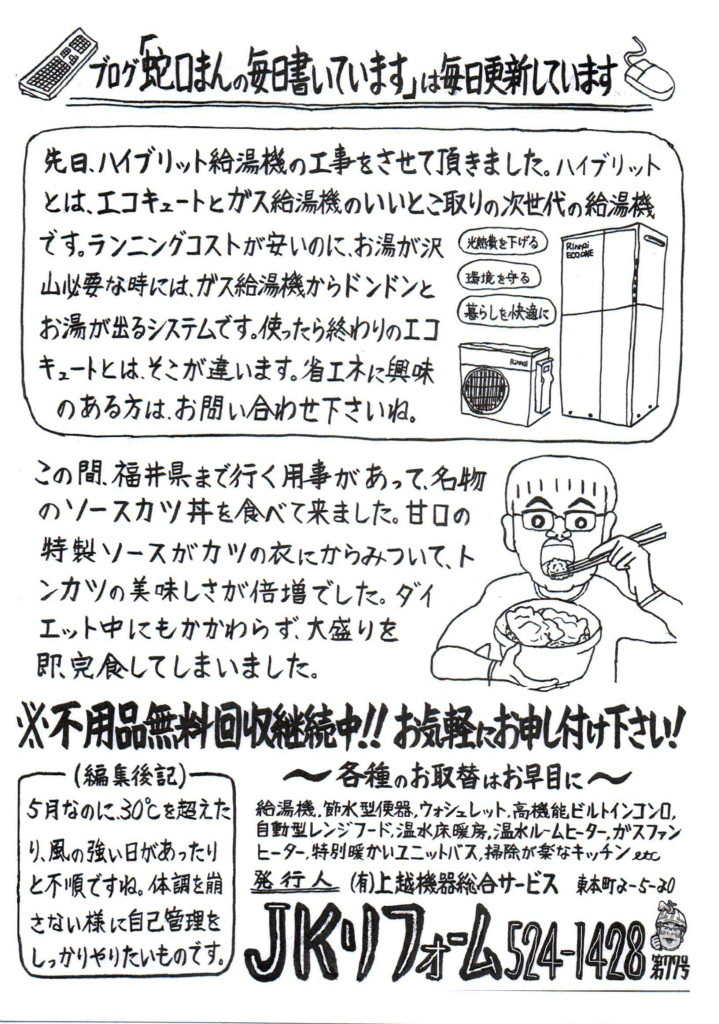 ブログ「蛇口まんの毎日書いています」は毎日更新しています
先日、ハイブリット給湯機の工事をさせて頂きました。ハイブリット
とは、エコキュートとガス給湯機のいいとこ取りの次世代の給湯機
です。ランニングコストが安いのに、お湯が沢
山必要な時には、ガス給湯機からドンドンと
お湯が出るシステムです。使ったら終わりのエコ
キュートとは、そこが違います。省エネに興味
のある方は、お問い合わせ下さいね。
光熱費を下げる
環境を守る
暮らしを快適に
Rinnai
ECO ONE
Rinnai
この間、福井県まで行く用事があって、名物
のソースカツ丼を食べて来ました。甘口の
特製ソースがカツの衣にからみついて、ト
ンカツの美味しさが倍増でした。ダイ
エット中にもかかわらず、大盛りを
即、完食してしまいました。
※不用品無料回収継続中!!お気軽にお申し付け下さい!
(編集後記)
5月なのに、30℃を超えた
り、風の強い日があったり
と不順ですね。体調を崩
さない様に自己管理を
しっかりやりたいものです。
〜各種のお取替はお早目に〜
給湯機,節水型便器,ウォシュレット,高機能ビルトインコンロ,
自動型レンジフード,温水床暖房,温水ルームヒーター,ガスファン
ヒーター,特別暖かいユニットバス,掃除が楽なキッチンetc
発行人 (有)上越機器総合サービス 東本町2-5-20
JKリフォーム524-1428 第77号